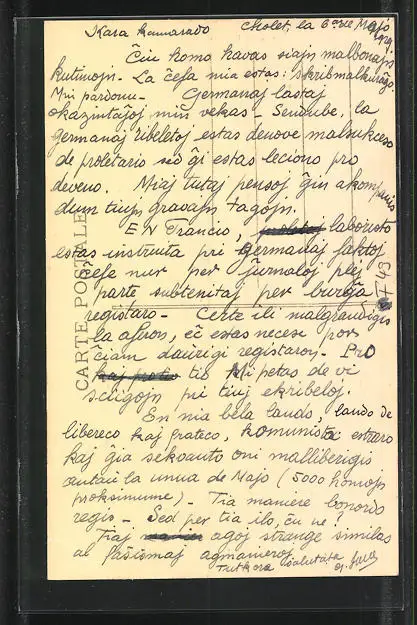 Kara kamarado Cholet, la 6an de Majo 1929
Ĉiu homo havas siajn malbonajn
kutimojn. La ĉefa mia estas: skribmalkuraĝo.
Mi pardonu - Germanaj lastaj
okazintaĵoj min vekas - Sendube, la
germanaj ribeletoj estas denove malsukceso
de proletario sed ĝi estas leciono pro
deveno. Miaj tutaj pensoj ĝin akompanis
dum tiuj gravajn tagojn.
En Francio, laboristo
estas instruita pri germanaj faktoj
ĉefe nur per ĵurnaloj plej
parte subtenitaj per burĝa
registaro - Certe ili malgrandigis
la aferon, eĉ estas necese por
ĉiam daŭrigi registaron - Pro
tio Mi petas de vi
sciigojn pri tiuj ekribeloj.
En nia bela lando, lando de
libereco kaj frateco, komunista estraro
kaj ĝia sekvanto oni malliberigis
antaŭ la unua de Majo (5000 homojn
proksimume) - Tia maniere bonordo
regis - Sed per tia ilo, ĉu ne!
Tiaj agoj strange similas
al faŝismaj agmanieroj
Tutkora saluta
CARTE POSTALE